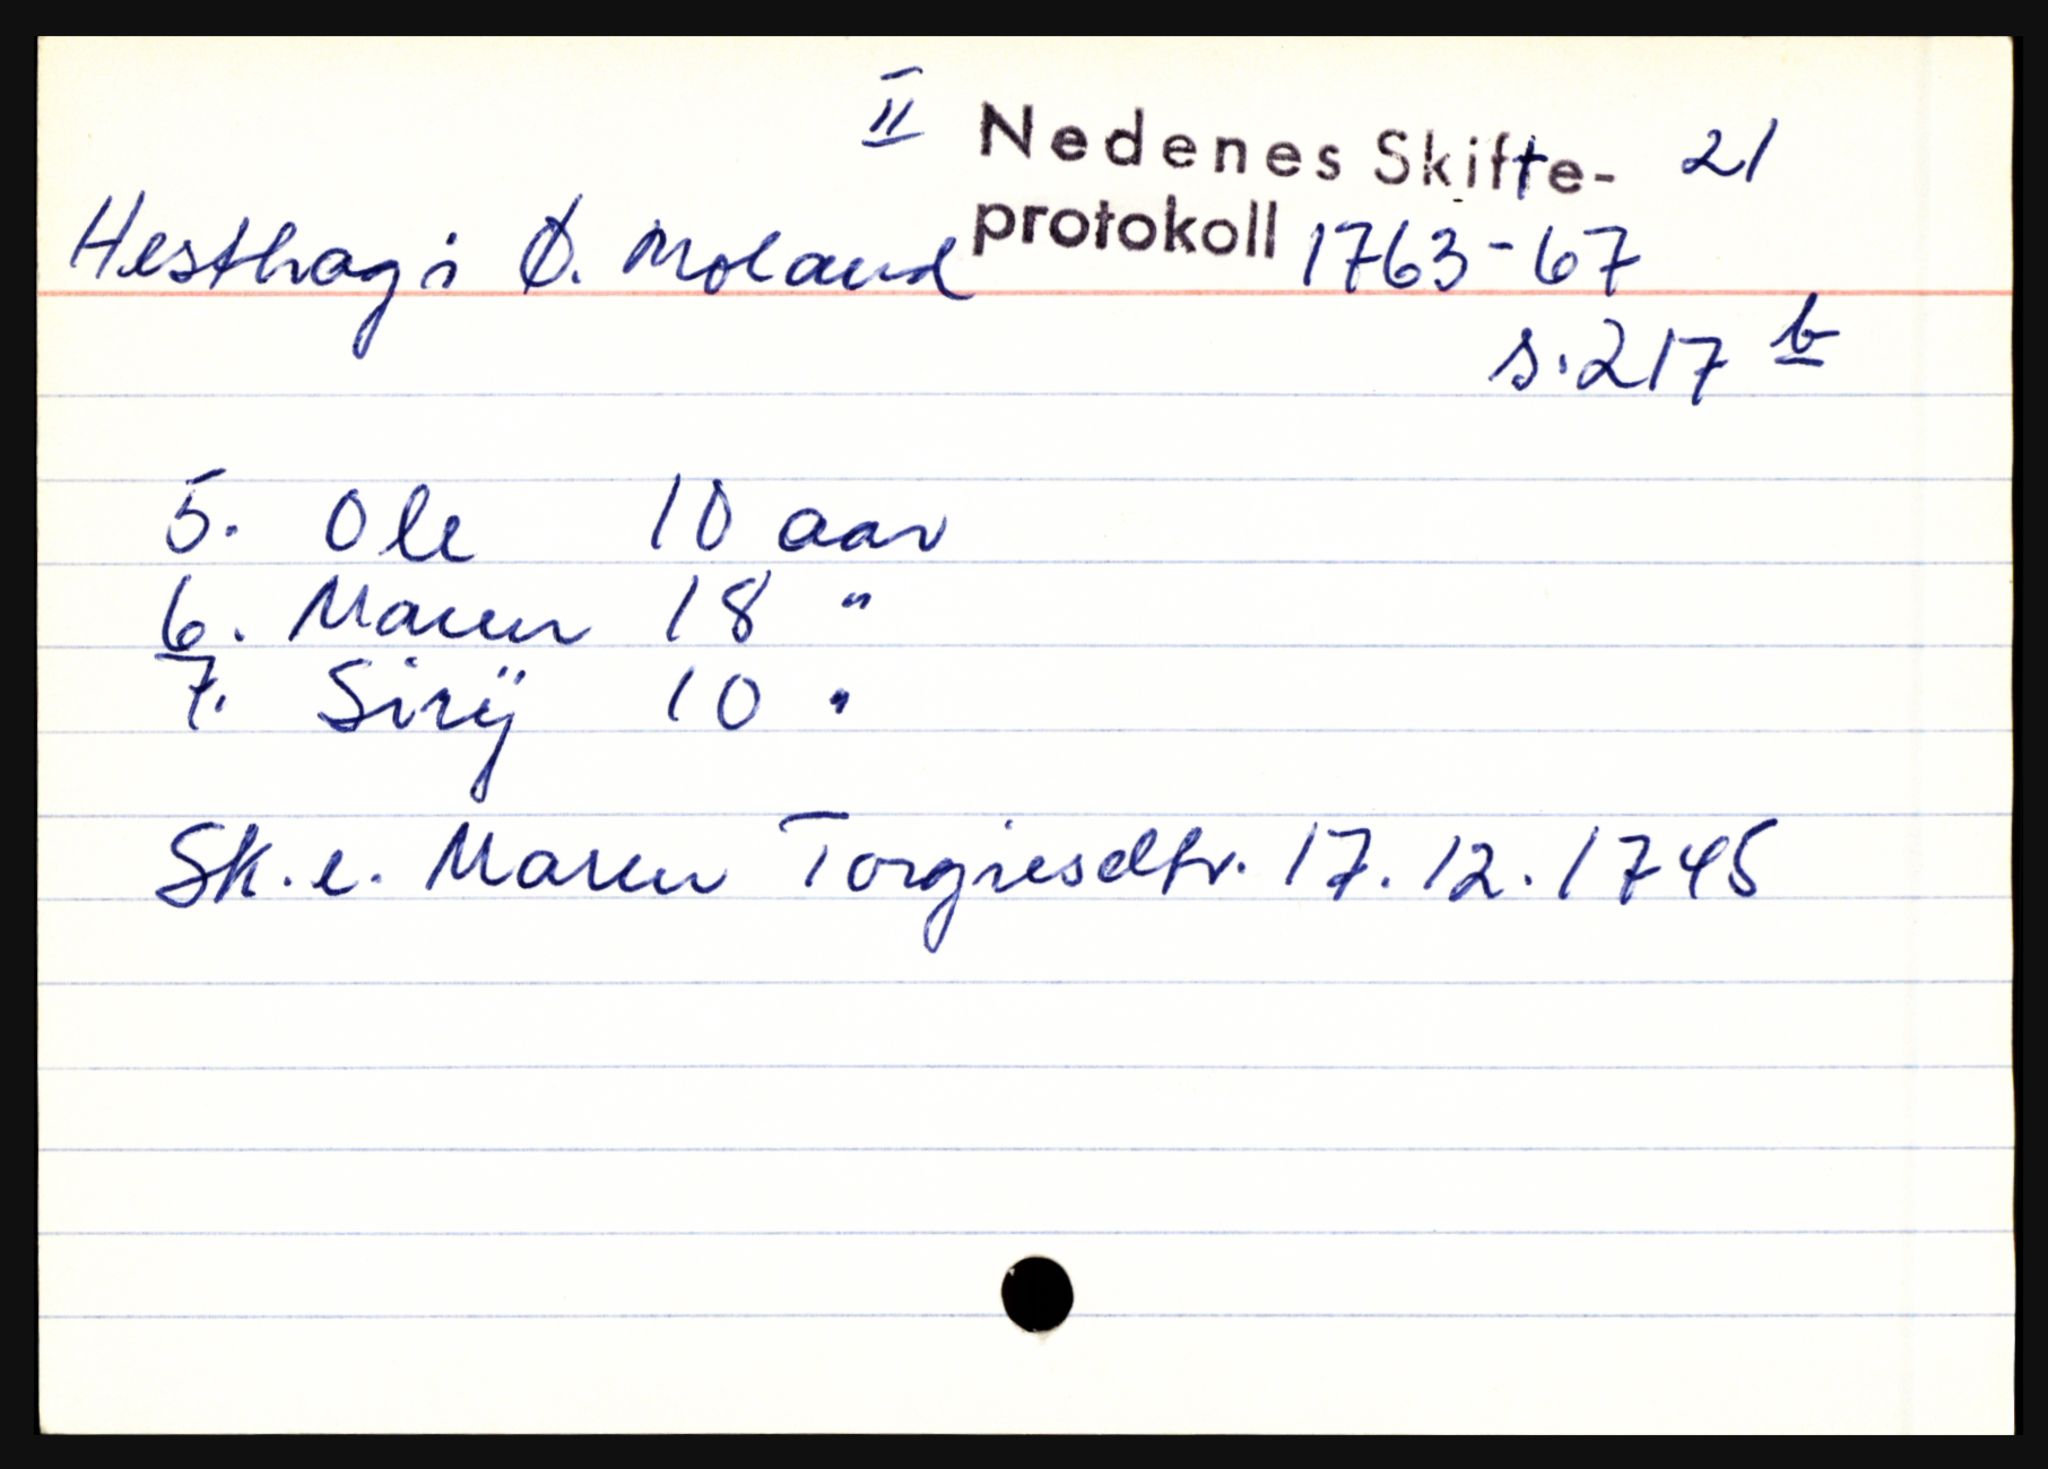 II Nedenes Skifte- 21
Hesthag i Ø. Moland protokoll 1763-67
s. 217 b
5. Ole 10 aar
6. Maren 18 "
7. Sirÿ 10 "
Sk. e. Maren Torgriesdtr. 17.12.1745